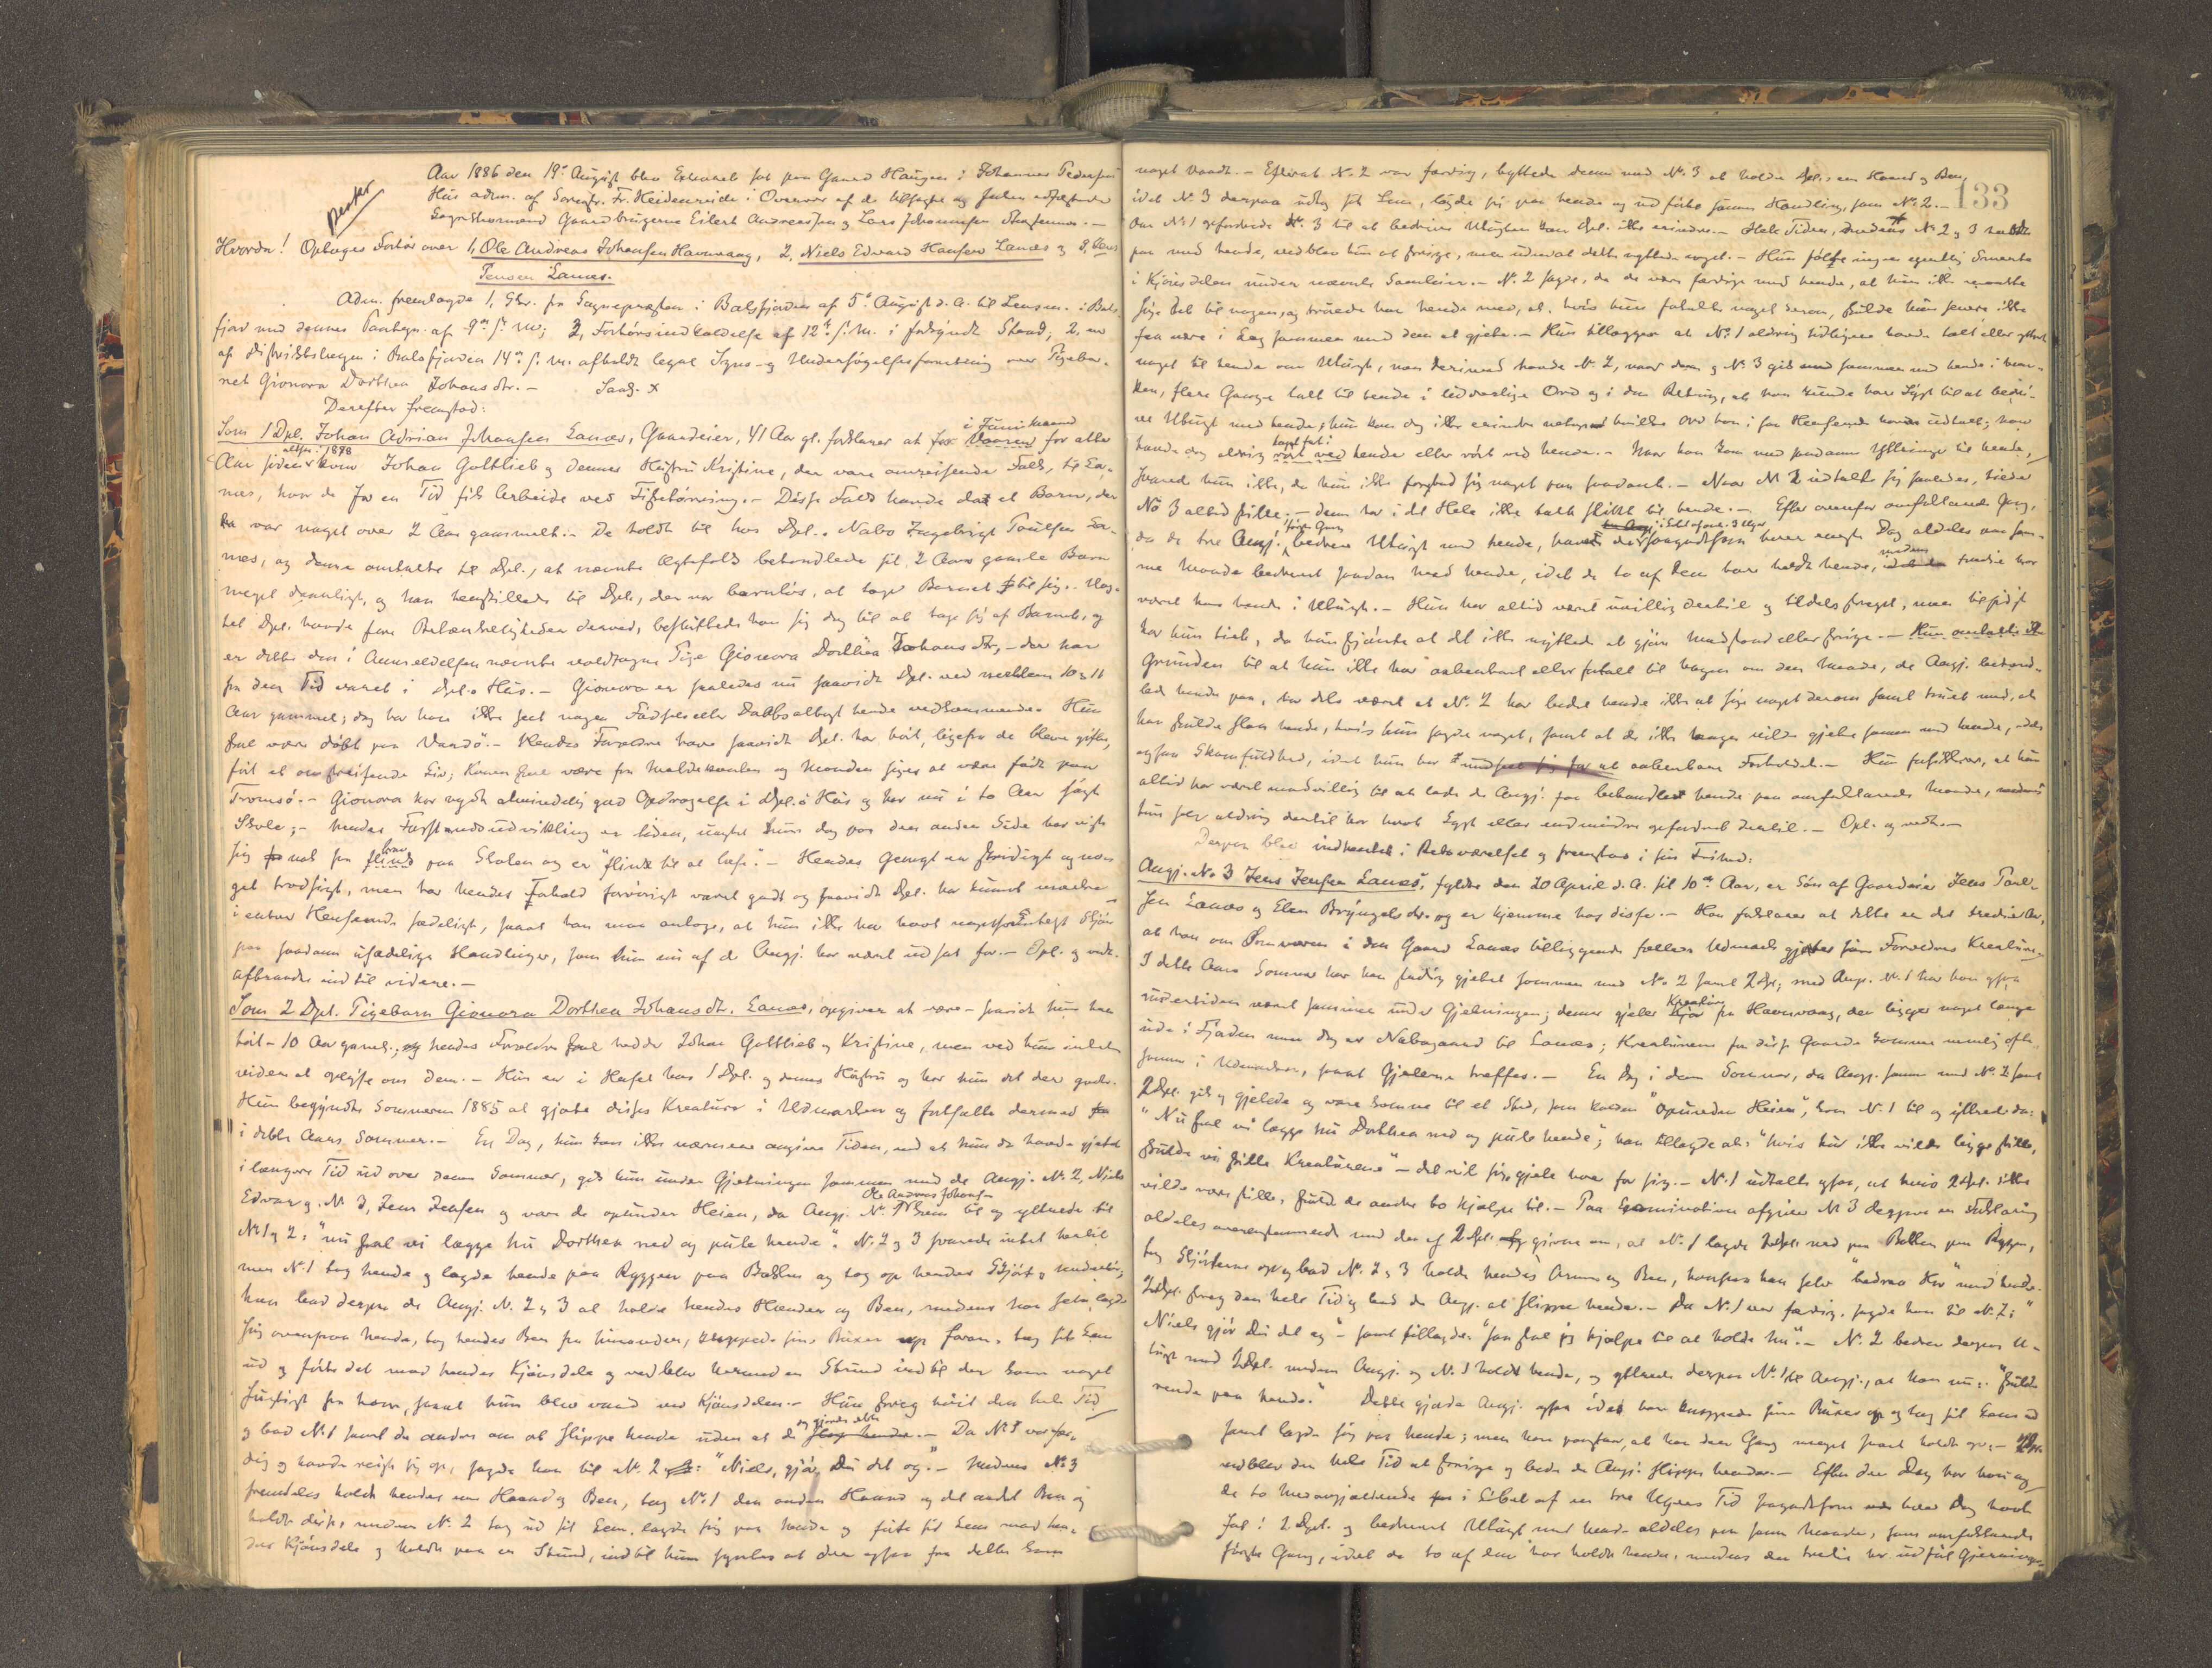 Aar 1886 den 19de August blev Extraret sat paa Gaard Haugen i Johannes Pedersens
Hus adm. af Sorenskr. Fr. Heidenreich i Overvær af de tilsagte og
Gaardbrugerne Eilert Andreassen og Lars Johannessen
Hvorda! Optages Forhør over 1, Ole Andreas Johansen Havnvaag, 2, Niels Edvard Hansen Lanæs og 3, Jens
Jensen Lanæs.
Adm. fremlagde 1, Skr. fra Sognepresten i Balsfjorden af 5te August d. A. til Lensm. i Bals-
fjord med dennes Paategn. af 9de s. M.; 2, Forhørsindkaldelse af 12te s. M. i forkyndt Stand; 3, en
af Distriktslægen i Balsfjorden 14de s. M. afholdt legal Syns- og Undersøgelsesforretning over Pigebar-
net Gionora Dorthea Johansdtr. –
Derefter fremstod:
i Juni maaned
Som 1 Dpl. Johan Adrian Johansen Lanæs, Gaardeier, 41 Aar gl. forklarer at for otte
Aar siden altsaa 1878 kom Johan Gottlieb og dennes Hustru Kristine, der vare omreisende Folk, til La-
næs, hvor de for en Tid fik Arbeide ved Fisketørring. – Disse Folk havde da et Barn, der
da var noget over 2 Aar gammelt. – De holdt til hos Dpl.s Nabo Ingebrigt Poulsen La-
næs, og denne omtalte til Dpl., at nævnte Ægtefolk behandlede sit 2 Aar gamle Barn
meget daarligt, og han henstillede til Dpl., der var barnløs, at tage Barnet til sig. Uag-
tet Dpl. havde sine Betænkeligheder derved, besluttede han sig dog til at tage sig af Barnet, og
er dette den i Anmeldelsen nævnte voldtagne Pige Gionora Dorthea Johansdtr, – der har
fra den Tid været i Dpl.s Hus. – Gionora er saaledes nu saavidt Dpl. ved mellem 10 og 11
Aar gammel; dog har han ikke seet nogen Fødsels eller Daabsattest hende vedkommende. Hun
skal være døbt paa Vardø. – Hendes Forældre have saavidt Dpl. har hørt, ligefra de bleve gifte,
ført et omstreifende Liv; Konen skal være fra og Manden siges at være født paa
Tromsø. – Gionora har nydt almindelig god Opdragelse i Dpl.s Hus og har nu i to Aar søgt
Skole; – hendes Forstandsudvikling er liden, uagtet hun dog paa den anden Side har vist
sig nok saa flink paa Skolen og er "flink til at læse". – Hendes Gemyt er stridigt og no-
get trodsigt, men har hendes Forhold forøvrigt været godt og saavidt Dpl. har kunnet mærke
i enhver Henseende sædeligt, saaat han maa antage, at hun ikke har havt nogetsomhelst Skjøn
paa saadanne usædelige Handlinger, som hun nu af de Angj. har været udsat for. – Opl. og vedt.
afbrandte indtil videre. –
Som 2 Dpl. Pigebarn Gionora Dorthea Johansdtr. Lanæs, opgiver at være – saavidt hun har
hørt – 10 Aar gammel; hendes Forældre skal hedde Johan Gottlieb og Kristine, men ved hun intet
videre at oplyse om dem. – Hun er i Huset hos 1 Dpl. og dennes Hustru og har hun det der godt.
Hun begyndte Sommeren 1885 at gjæte disses Kreaturer i Udmarken og fortsatte dermed
i dette Aars Sommer. – En Dag, hun kan ikke nærmere angive Tiden, end at hun da havde gjætet
i længere Tid ud over denne Sommer, gik hun under Gjætningen sammen med de Angj. No. 2, Niels
Edvard og No. 3, Jens Jensen og vare de opunder Heien, da Angj. No. 1 Ole Andreas Johansen kom til og yttrede til
No. 1 og 2: "nu skal vi lægge hu Dorthea ned og pule hende". No. 2 og 3 svarede intet hertil
men No. 1 tog hende og lagde hende paa Ryggen paa Bakken og tog op hendes Skjørt,
han bad derpaa de Angj. No. 2 og 3 at holde hendes Hænder og Ben, medens han selv lagde
sig ovenpaa hende, tog hendes Ben fra hinanden, knappede sine Buxer op foran, tog sit Lem
ud og førte det mod hendes Kjønsdele og vedblev hermed en Stund indtil der kom noget
fugtigt fra ham, saaat hun blev vaad ved Kjønsdelen. – Hun skreg høit den hele Tid
og bad No. 1 samt de andre om at slippe hende uden at de gjorde dette. – Da No. 1 var fær-
dig og havde reist sig op, sagde han til No. 2: "Niels, gjør Du det og". – Medens No. 3
fremdeles holdt hendes ene Haand og Ben, tog No. 1 den anden Haand og det andet Ben og
holdt disse, medens No. 2 tog ud sit Lem, lagde sig paa hende og førte sit Lem mod hen-
des Kjønsdele og holdt paa en Stund, indtil hun syntes at der ogsaa fra dette kom
133
noget vaadt. – Efterat No. 2 var færdig, byttede denne med No. 3 at holde Dpl.s ene Haand og Ben,
idet No. 3 derpaa udtog sit Lem, lagde sig paa hende og udførte samme Handling, som No. 2. –
Om No. 1 opfordrede No. 3 til at bedrive Utugten kan Dpl. ikke erindre. – Hele Tiden, medens No. 2 og 3 holdt
paa med hende, vedblev hun at skrige, men uden at dette nyttede noget. – Hun følte ingen egentlig Smerte
i Kjønsdelen under nævnte Samleie. – No. 2 sagde, da de vare færdige med hende, at hun ikke maatte
sige det til nogen, og truede han hende med, at, hvis hun fortalte noget derom, skulde hun senere ikke
faa være i Lag sammen med dem at gjæte. – Hun tillægger at No. 1 aldrig tidligere havde talt eller yttret
noget til hende om Utugt, men derimod havde No. 2, naar denne og No. 3 gik sammen med hende i Mar-
ken, flere Gange talt til hende i liderlige Ord og i den Retning, at han kunde have Lyst til at bedri-
ve Utugt med hende; hun kan dog ikke erindre hvilke Ord han i saa Henseende havde udtalt; han
havde dog aldrig taget fat i hende eller rørt ved hende. – Naar han kom med saadanne Yttringer til hende,
svared hun ikke, da hun ikke forstod sig noget paa saadant. – Naar No. 2 udtalte sig saaledes, tiede
No 3 altid stille; – denne har i det Hele ikke talt stikt til hende. – Efter ovenfor omforklarede Gang,
da de tre Angj. første Gang bedrev Utugt med hende, have de i Løbet af omt. 3 Uger hver eneste Dag aldeles paa sam-
me Maade bedrevet saadan med hende, idet de to af dem have holdt hende, medens tredie har
været hos hende i Utugt. – Hun har altid været uvillig dertil og tildels skreget, men tilsidst
har hun tiet, da hun skjønte at det ikke nyttede at gjøre Modstand eller skrige. –
Grunden til at hun ikke har aabenbaret eller fortalt til nogen om den Maade, de Angj. behand-
lede hende paa, har dels været at No. 2 har bedet hende ikke at sige noget derom samt truet med, at
han skulde slaa hende, hvis hun sagde noget, samt at de ikke længer vilde gjæte sammen med hende, dels
ogsaa Skamfuldhed, idet hun har undseet sig for at aabenbare Forholdet. – Hun forsikkrer, at hun
altid har været modvillig til at lade de Angj. faa behandlet hende paa omforklarede Maade,
hun selv aldrig dertil har havt Lyst eller endmindre opfordret dertil. – Opl. og vedt. –
Derpaa blev indkaldt i Retsværelset og fremstod i sin Frihed:
Angj. No 3 Jens Jensen Lanæs, fyldte den 20 April d. A. sit 10de Aar, er Søn af Gaardeier Jens Poul-
sen Lanæs og Elen Bryngelsdtr. og er hjemme hos disse. – Han forklarer at dette er det tredie Aar,
at han om Sommeren i den Gaard Lanæs tilliggende fælles Udmark gjæter sine Forældres Kreaturer.
I dette Aars Sommer har han stadig gjætet sammen med No. 2 samt 2 Dpl., med Angj. No. 1 har han ogsaa
undertiden været sammen under Gjætningen; denne gjæter Kreaturer fra Havnvaag, der ligger noget længer
ude i Fjorden men dog er Nabogaard til Lanæs; Kreaturene fra disse Gaarde komme nemlig ofte
sammen i Udmarken, saaat Gjæterne træffes. – En Dag i denne Sommer, da Angj. samm. med No. 2 samt
2 Dpl. gik og gjætede og vare komne til et Sted, som kaldes "opunder Heien", kom No. 1 til og yttrede da:
"Nu skal vi lægge hu Dorthea ned og pule hende"; han tillagde at: "hvis hun ikke vilde ligge stille,
skulde vi skille Kreaturene" – det vil sige gjæte hver for sig. – No. 1 udtalte ogsaa, at hvis 2 Dpl. ikke
vilde være stille, skulde de andre to hjælpe til. – Paa Examination afgiver No 3 derpaa en Forklaring
aldeles overensstemmende med den af 2 Dpl. givne om, at No. 1 lagde 2 Dpl. ned paa Bakken paa Ryggen,
tog Skjørterne op og bad No. 2 og 3 holde hendes Arme og Ben, hvorpaa han selv "bedrev Hor" med hende.
2 Dpl. skreg den hele Tid og bad de Angj. at slippe hende. – Da No. 1 var færdig, sagde han til No. 2: "
Niels gjør Du det og" – samt tillagde: "saa skal jeg hjælpe til at holde hu". – No. 2 bedrev derpaa U-
tugt med 2 Dpl. medens Angj. og No. 1 holdt hende, og yttrede derpaa No. 1 til Angj., at han nu: "skulde
rende paa hende." Dette gjorde Angj. ogsaa idet han knappede sine Buxer op og tog sit Lem ud
samt lagde sig paa hende; men han paastaar, at han den Gang meget snart holdt op; – 2 Dpl.
vedblev den hele Tid at skrige og bede de Angj. slippe hende. – Efter den Dag har han og
de to Medangjældende i Løbet af en tre Ugers Tid saagodtsom hver Dag havt
fat i 2 Dpl. og bedrevet Utugt med hende aldeles paa samme Maade, som omforklarede
første Gang, idet de to af dem har holdt hende, medens den tredie har udført Gjerningen.